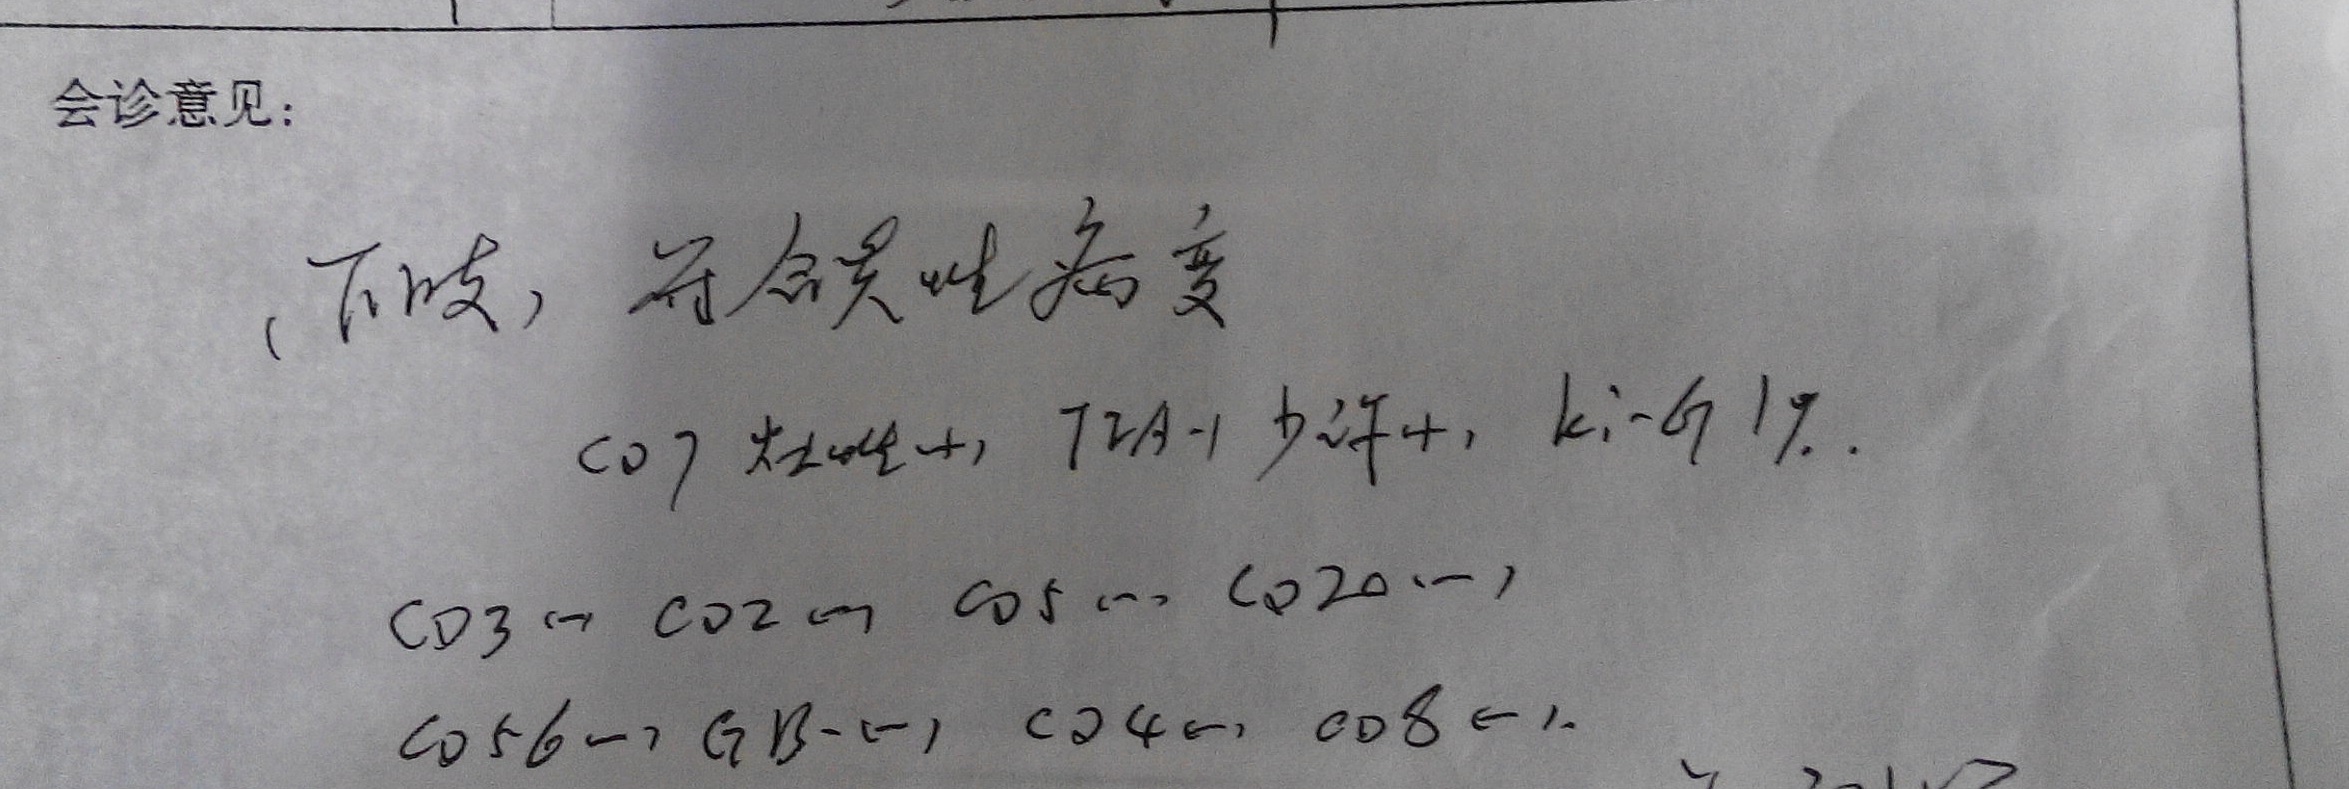 会诊意见：
（下肢，符合炎性病变
CD7 灶性+, TIA-1 少许+, ki-67 1%.
CD3(-) CD2(-) CD5(-), CD20(-),
CD56(-), GB(-), CD4(-), CD8(-).